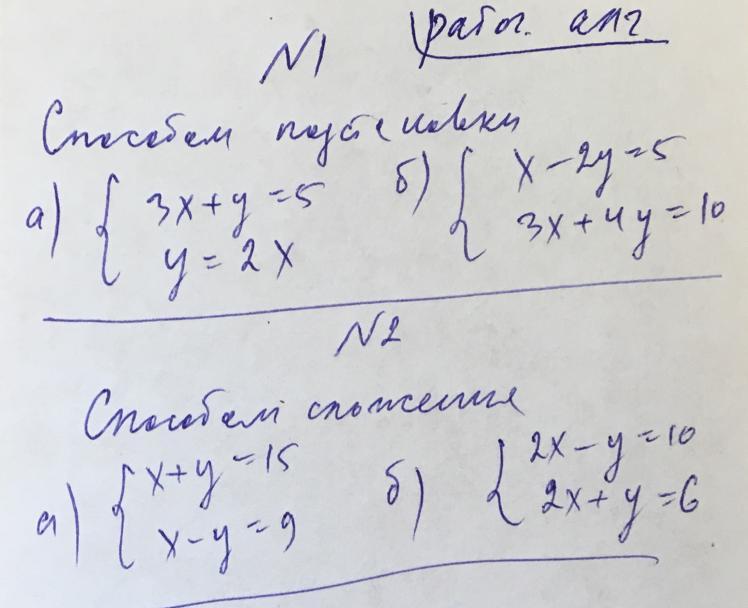 работ. алг.
N1
Способом подстановки
а) { 3x+y=5
y=2x
б) { x-2y=5
3x+4y=10
N2
Способом сложения
а) { x+y=15
x-y=9
б) { 2x-y=10
2x+y=6